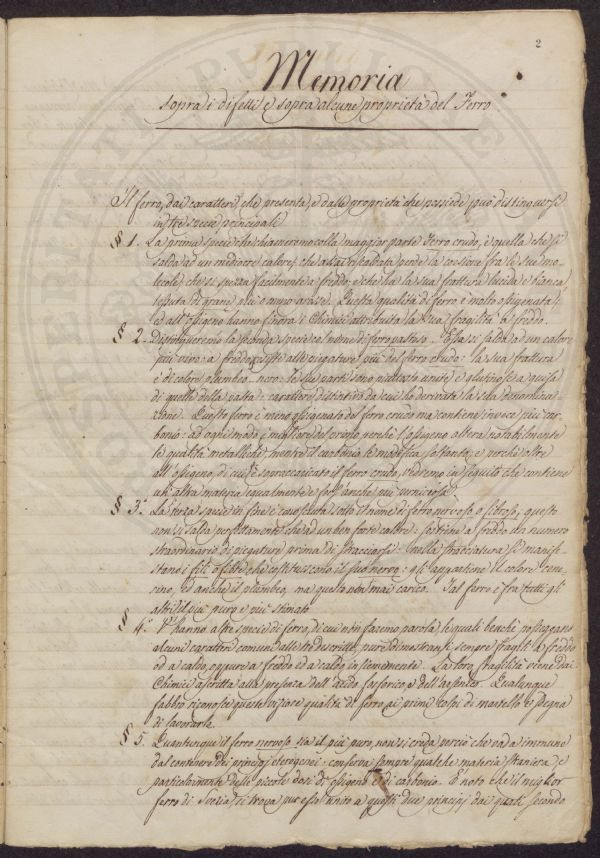 2
Memoria
sopra i difetti e sopra alcune proprietà del Ferro
Il ferro, dai caratteri, che presenta, e dalle proprietà che possiede, può distinguersi
in tre specie principali
§ 1. La prima specie che chiameremo colla maggior parte Ferro crudo, è quella che si
salda ad un mediocre calore, che riscaldata perde la coesione fra le sue mo-
lecole, che si spezza facilmente a freddo, e che ha la sua frattura lucida e bianca,
tessuta di grane più o meno grosse. Questa qualità di ferro è molto ossigenata,
ed all'ossigeno hanno finora i Chimici attribuita la sua fragilità a freddo.
§ 2. Distingueremo la seconda specie col nome di ferro pastoso. Essa si salda a un calore
più vivo: a freddo resiste alle piegature più del ferro crudo: la sua frattura
è di colore plumbeo-nero: le sue parti sono piuttosto unite, e glutinose a guisa
di quelle della pasta: carattere distintivo da cui ho derivata la sua denomina-
zione. Questo ferro è meno ossigenato del ferro crudo ma contiene invece più car-
bonio: ad ogni modo è migliore del primo, perchè l'ossigeno altera notabilmente
le qualità metalliche mentre il carbonio le modifica soltanto, e perchè oltre
all'ossigeno, di cui è sopraccaricato il ferro crudo, vedremo in seguito che contiene
un'altra materia egualmente e fors'anche più perniciosa.
§ 3. La terza specie in fine è conosciuta sotto il nome di ferro nervoso o fibroso; questo
non si salda perfettamente che ad un ben forte calore: sostiene a freddo un numero
straordinario di piegature prima di stracciarsi: nella stracciatura si manife-
stano i fili che costituiscono il suo nervo: gli appartiene il colore cene-
rino, ed anche il plumbeo, ma questo non mai carico. Tal ferro è fra tutti gli
altri il più puro e più stimato.
§ 4. V'hanno altre specie di ferro, di cui non facciamo parola le quali benchè posseggano
alcuni caratteri comuni alle tre descritte, pure dimostransi sempre fragili a freddo
od a caldo, oppure a freddo ed a caldo insiememente. La loro fragilità viene dai
Chimici ascritta alla presenza dell'acido fosforico, e dell'arsenico. Qualunque
fabbro riconosce queste viziose qualità di ferro ai primi colpi di martello e sdegna
di lavorarle.
§ 5. Quantunque il ferro nervoso sia il più puro, non si creda perciò che vada immune
dal contenere principj eterogenei: conserva sempre qualche materia straniera e
particolarmente delle piccole dosi di ossigeno e di carbonio. È noto che il miglior
ferro di Svezia si trova pur esso unito a questi due principj dai quali secondo